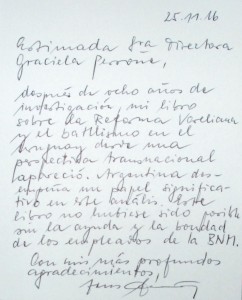 25.11.16
Estimada Sra Directora
Graciela Perrone,
después de ocho años de
investigación, mi libro
sobre la Reforma Vareliana
y el batllismo en el
Uruguay desde una
perspectiva transnacional
apareció. Argentina des-
empeña un papel significa-
tivo en este análisis. Este
libro no hubiese sido posible
sin la ayuda y la bondad
de los empleados de la BNM.
Con mis más profundos
agradecimientos,
Jens